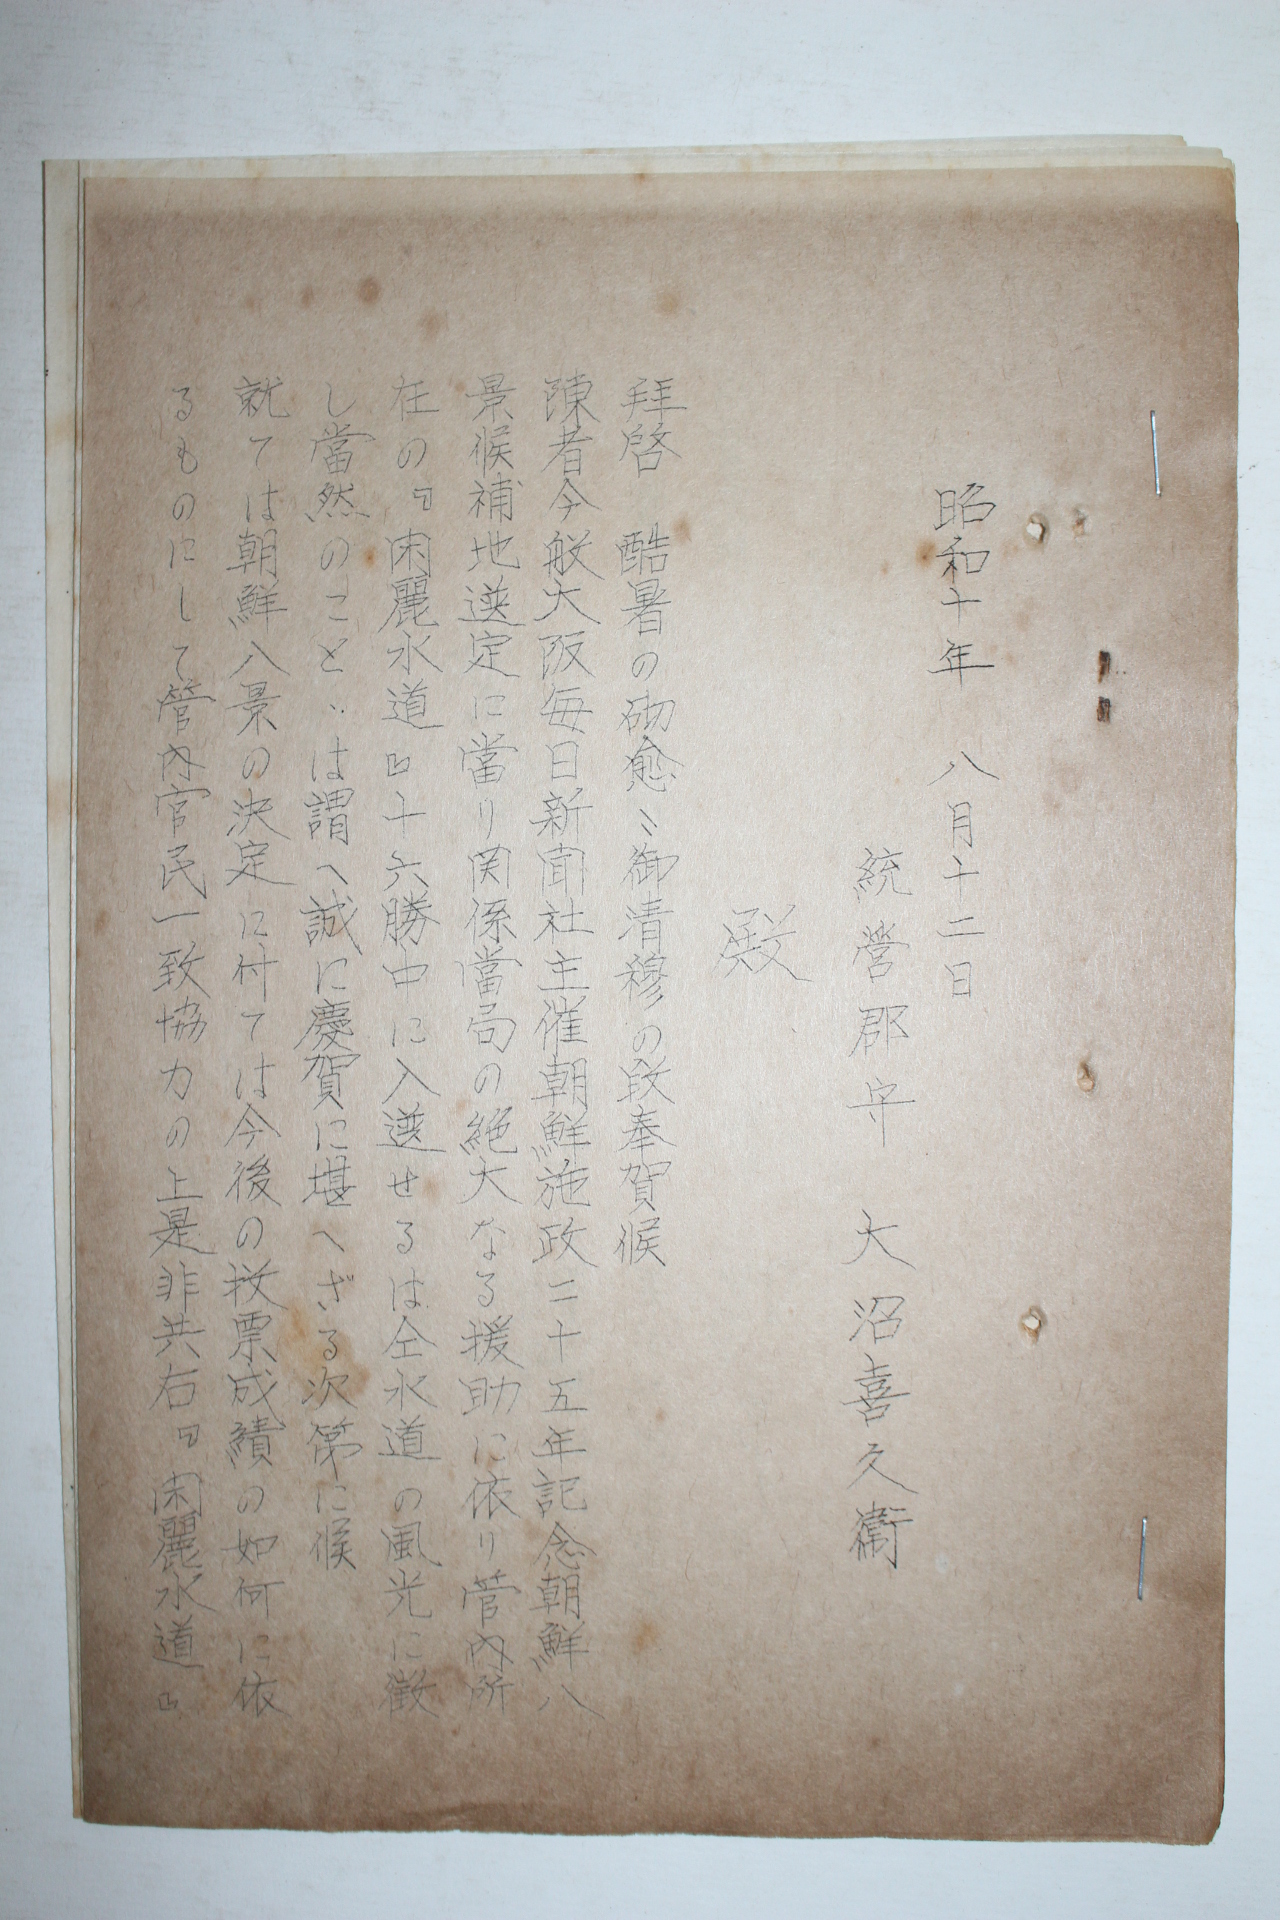 昭和十年　八月十二日
統營郡守　大沼喜久衞
殿
拜啓　酷暑の砌愈〻御清穆の段奉賀候
陳者今般大阪毎日新聞社主催朝鮮施政二十五年記念朝鮮八
景候補地選定に當り関係當局の絶大なる援助に依り管内所
在の『閑麗水道』十六勝中に入選せるは仝水道の風光に徴
し當然のことゝは謂へ誠に慶賀に堪へざる次第に候
就ては朝鮮八景の決定に付ては今後の投票成績の如何に依
るものにして管内官民一致協力の上是非共右『閑麗水道』